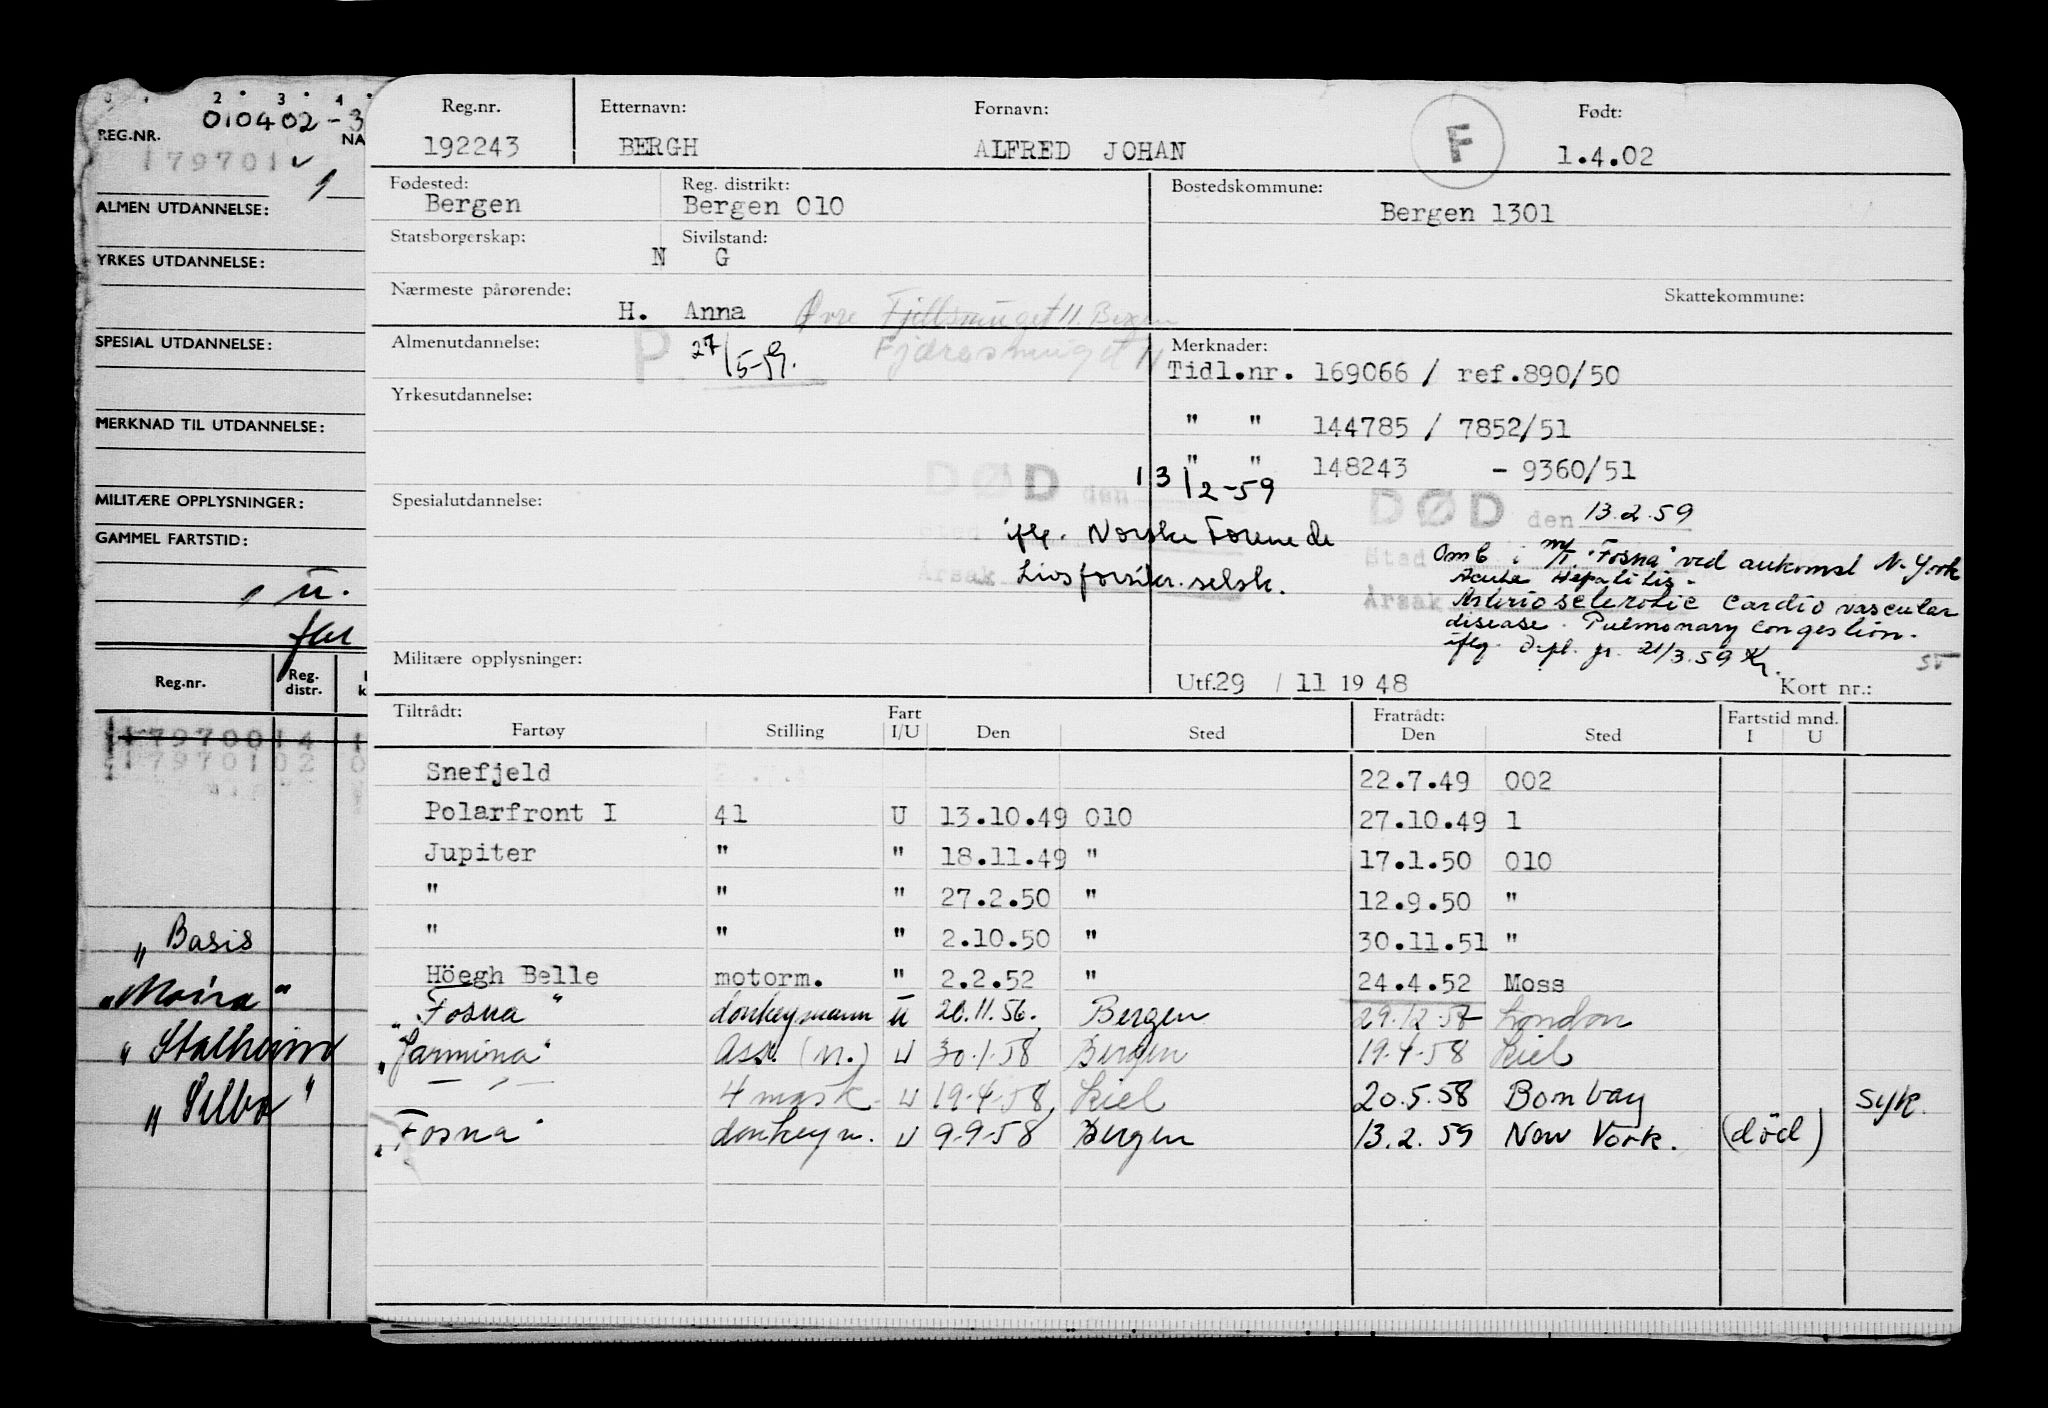 2 3 4
010402-3
REG.NR. NA
179701
ALMEN UTDANNELSE:
YRKES UTDANNELSE:
SPESIAL UTDANNELSE:
MERKNAD TIL UTDANNELSE:
MILITÆRE OPPLYSNINGER:
GAMMEL FARTSTID:
Reg.nr. Reg. distr.
179700 14 1
179701 02 0
" Basis
"Moira"
"Stalheim
"Selbo"
Reg.nr. Etternavn: Fornavn: Født:
192243 BERGH ALFRED JOHAN F 1.4.02
Fødested: Reg. distrikt: Bostedskommune:
Bergen Bergen 010 Bergen 1301
Statsborgerskap: Sivilstand:
N G
Nærmeste pårørende: Skattekommune:
H. Anna Øvre Fjellsmuget 11. Bergen
Almenutdannelse: P. 27/5-59. Fjæresmuget 11 Merknader:
Tidl.nr. 169066 / ref.890/50
Yrkesutdannelse:
" " 144785 / 7852/51
" " 148243 - 9360/51
DØD den 13/2-59
Spesialutdannelse:
iflg. Norske Forenede
Årsak Livsforsikr.selsk.
DØD den 13.2.59
Sted Omb. i M/T. "Fosna" ved ankomst N. York
Acute Hepatitis.
Årsak Arteriosclerotic cardio vascular
disease. Pulmonary congestion.
iflg. dpl. gr. 21/3.59 Kr.
Militære opplysninger:
Utf.29 / 11 19 48 Kort nr.:
Tiltrådt: Fart Fratrådt: Fartstid mnd.
Fartøy Stilling I/U Den Sted Den Sted I U
Snefjeld 22.7.49 002
Polarfront I 41 U 13.10.49 010 27.10.49 1
Jupiter " " 18.11.49 " 17.1.50 010
" " " 27.2.50 " 12.9.50 "
" " " 2.10.50 " 30.11.51 "
Höegh Belle motorm. " 2.2.52 " 24.4.52 Moss
"Fosna" donkeymann u 20.11.56. Bergen 29.12.57 London
"Jarmina" Ass. (M.) u 30.1.58 Bergen 19.4.58 Kiel
— " — 4 mask. u 19.4.58 Kiel 20.5.58 Bombay syk.
"Fosna" donkeym. u 9.9.58 Bergen 13.2.59 New York. (död)